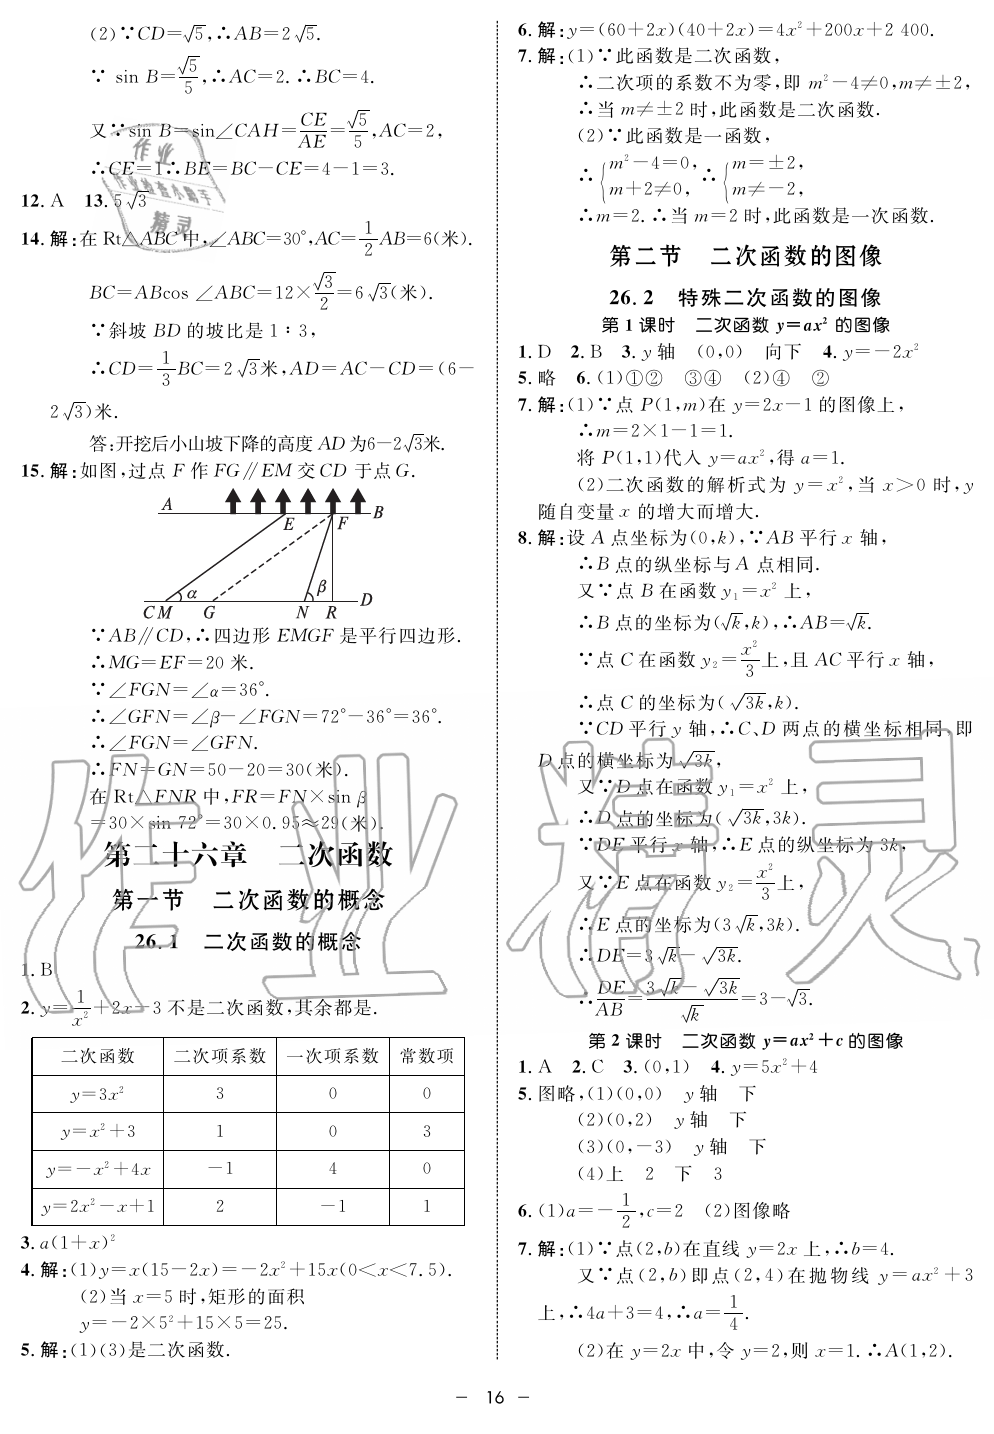 (2)∵CD=√5,∴AB=2√5.
∵ sin B=√5/5,∴AC=2.∴BC=4.
又∵sin B=sin∠CAH=CE/AE=√5/5,AC=2,
∴CE=1∴BE=BC-CE=4-1=3.
12.A 13.5√3
14.解:在Rt△ABC中,∠ABC=30°,AC=1/2AB=6(米).
BC=ABcos ∠ABC=12×√3/2=6√3(米).
∵斜坡BD的坡比是1∶3,
∴CD=1/3BC=2√3米,AD=AC-CD=(6-
2√3)米.
答:开挖后小山坡下降的高度AD为6-2√3米.
15.解:如图,过点F作FG∥EM交CD于点G.
A E F B
α β
C M G N R D
∵AB∥CD,∴四边形EMGF是平行四边形.
∴MG=EF=20米.
∵∠FGN=∠α=36°.
∴∠GFN=∠β-∠FGN=72°-36°=36°.
∴∠FGN=∠GFN.
∴FN=GN=50-20=30(米).
在Rt△FNR中,FR=FN×sin β
=30×sin 72°=30×0.95≈29(米).
第二十六章 二次函数
第一节 二次函数的概念
26.1 二次函数的概念
1.B
2.y=1/x²+2x-3不是二次函数,其余都是.
二次函数 二次项系数 一次项系数 常数项
y=3x² 3 0 0
y=x²+3 1 0 3
y=-x²+4x -1 4 0
y=2x²-x+1 2 -1 1
3.a(1+x)²
4.解:(1)y=x(15-2x)=-2x²+15x(0<x<7.5).
(2)当x=5时,矩形的面积
y=-2×5²+15×5=25.
5.解:(1)(3)是二次函数.
6.解:y=(60+2x)(40+2x)=4x²+200x+2 400.
7.解:(1)∵此函数是二次函数,
∴二次项的系数不为零,即m²-4≠0,m≠±2,
∴当m≠±2时,此函数是二次函数.
(2)∵此函数是一函数,
∴{m²-4=0, m+2≠0, ∴{m=±2, m≠-2,
∴m=2.∴当m=2时,此函数是一次函数.
第二节 二次函数的图像
26.2 特殊二次函数的图像
第1课时 二次函数y=ax²的图像
1.D 2.B 3.y轴 (0,0) 向下 4.y=-2x²
5.略 6.(1)①② ③④ (2)④ ②
7.解:(1)∵点P(1,m)在y=2x-1的图像上,
∴m=2×1-1=1.
将P(1,1)代入y=ax²,得a=1.
(2)二次函数的解析式为y=x²,当x>0时,y
随自变量x的增大而增大.
8.解:设A点坐标为(0,k),∵AB平行x轴,
∴B点的纵坐标与A点相同.
又∵点B在函数y₁=x²上,
∴B点的坐标为(√k,k),∴AB=√k.
∵点C在函数y₂=x²/3上,且AC平行x轴,
∴点C的坐标为(√3k,k).
∵CD平行y轴,∴C、D两点的横坐标相同,即
D点的横坐标为√3k,
又∵D点在函数y₁=x²上,
∴D点的坐标为(√3k,3k).
∵DE平行x轴,∴E点的纵坐标为3k,
又∵E点在函数y₂=x²/3上,
∴E点的坐标为(3√k,3k).
∴DE=3√k-√3k.
∴DE/AB=(3√k-√3k)/√k=3-√3.
第2课时 二次函数y=ax²+c的图像
1.A 2.C 3.(0,1) 4.y=5x²+4
5.图略,(1)(0,0) y轴 下
(2)(0,2) y轴 下
(3)(0,-3) y轴 下
(4)上 2 下 3
6.(1)a=-1/2,c=2 (2)图像略
7.解:(1)∵点(2,b)在直线y=2x上,∴b=4.
又∵点(2,b)即点(2,4)在抛物线y=ax²+3
上,∴4a+3=4,∴a=1/4.
(2)在y=2x中,令y=2,则x=1.∴A(1,2).
- 16 -
作业精灵
作业
作业检查小助手
精灵